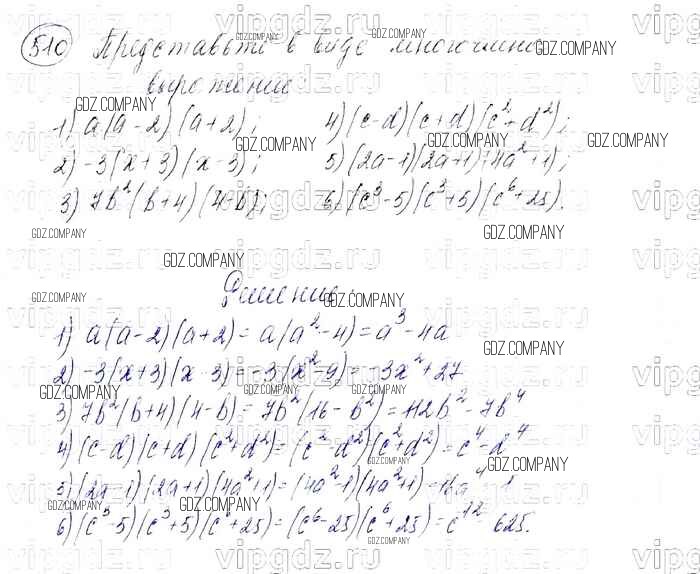 510 Представьте в виде многочлена
выражение
1) a(a-2)(a+2); 4) (c-d)(c+d)(c²+d²);
2) -3(x+3)(x-3); 5) (2a-1)(2a+1)(4a²+1);
3) 7b²(b+4)(4-b); 6) (c³-5)(c³+5)(c⁶+25).
Решение:
1) a(a-2)(a+2) = a(a²-4) = a³-4a
2) -3(x+3)(x-3) = -3(x²-9) = -3x²+27
3) 7b²(b+4)(4-b) = 7b²(16-b²) = 112b²-7b⁴
4) (c-d)(c+d)(c²+d²) = (c²-d²)(c²+d²) = c⁴-d⁴
5) (2a-1)(2a+1)(4a²+1) = (4a²-1)(4a²+1) = 16a⁴-1
6) (c³-5)(c³+5)(c⁶+25) = (c⁶-25)(c⁶+25) = c¹²-625.
GDZ.COMPANY
vipgdz.ru